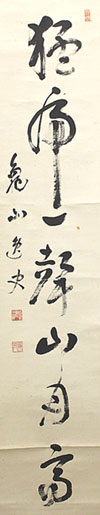 猛虎一聲山月高
兔山逸史